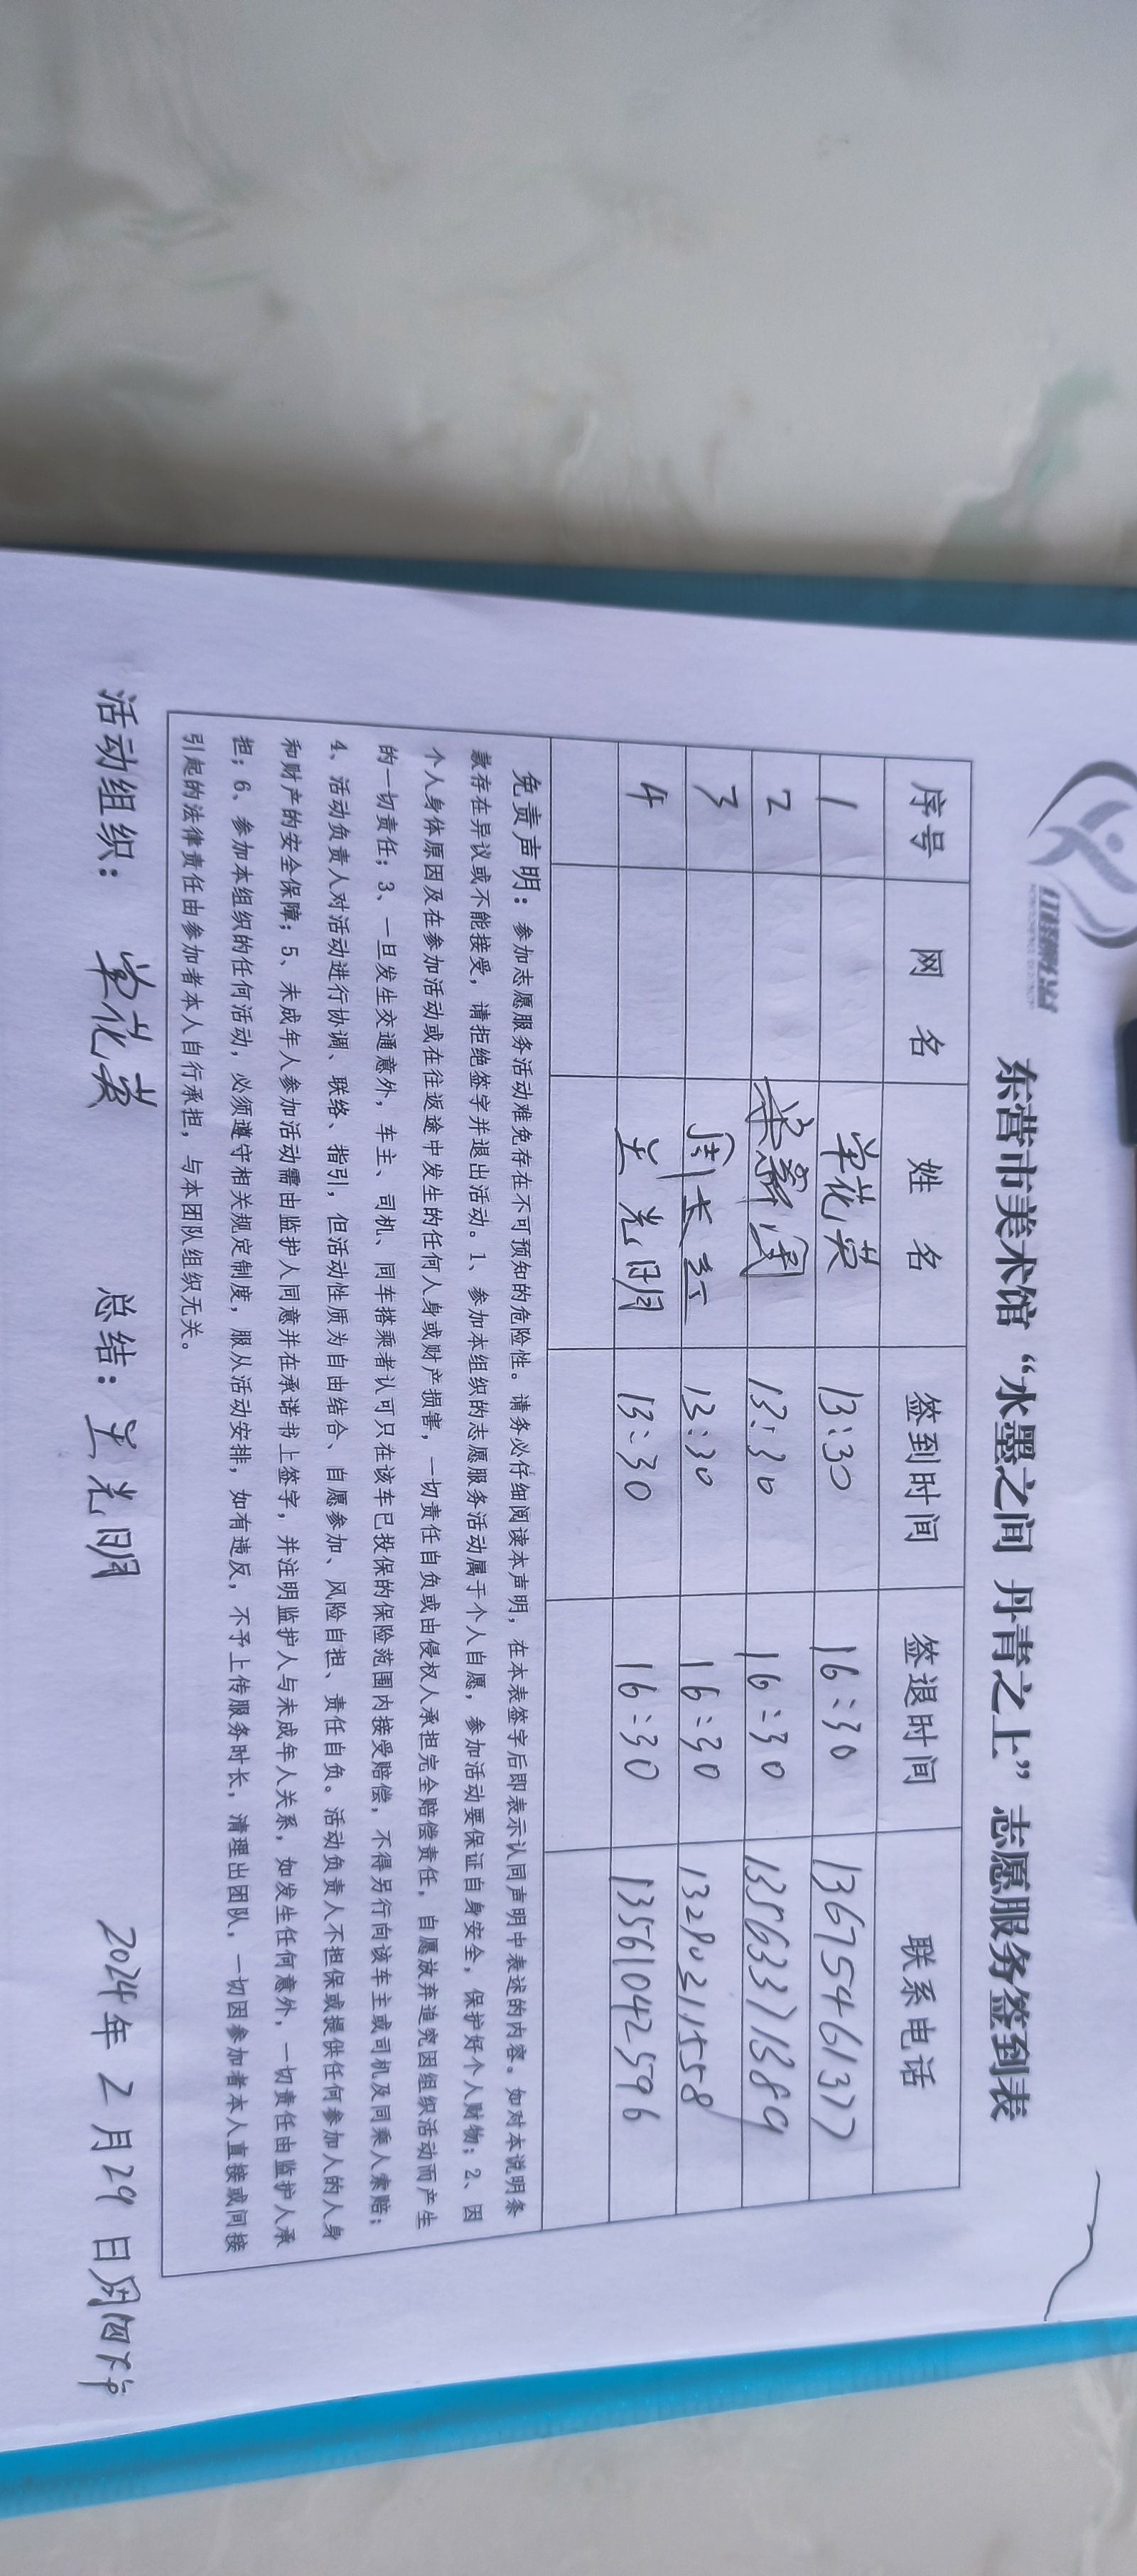 东营市美术馆“水墨之间 丹青之上”志愿服务签到表
序号 网 名 姓 名 签到时间 签退时间 联系电话
1 单花英 13:30 16:30 13675461377
2 13:30 16:30 13563371389
3 周长红 13:30 16:30 13280321558
4 兰光明 13:30 16:30 13561042596
免责声明：参加志愿服务活动难免存在不可预知的危险性。请务必仔细阅读本声明，在本表签字后即表示认同声明中表述的内容。如对本说明条
款存在异议或不能接受，请拒绝签字并退出活动。1、参加本组织的志愿服务活动属于个人自愿，参加活动要保证自身安全，保护好个人财物；2、因
个人身体原因及在参加活动或在往返途中发生的任何人身或财产损害，一切责任自负或由侵权人承担完全赔偿责任，自愿放弃追究因组织活动而产生
的一切责任；3、一旦发生交通意外，车主、司机、同车搭乘者认可只在该车已投保的保险范围内接受赔偿，不得另行向该车主或司机及同乘人索赔；
4、活动负责人对活动进行协调、联络、指引，但活动性质为自由结合、自愿参加、风险自担、责任自负。活动负责人不担保或提供任何参加人的人身
和财产的安全保障；5、未成年人参加活动需由监护人同意并在承诺书上签字，并注明监护人与未成年人关系，如发生任何意外，一切责任由监护人承
担；6、参加本组织的任何活动，必须遵守相关规定制度，服从活动安排，如有违反，不予上传服务时长，清理出团队，一切因参加者本人直接或间接
引起的法律责任由参加者本人自行承担，与本团队组织无关。
活动组织：单花英 总结：兰光明 2024年 2 月 29 日周四下午